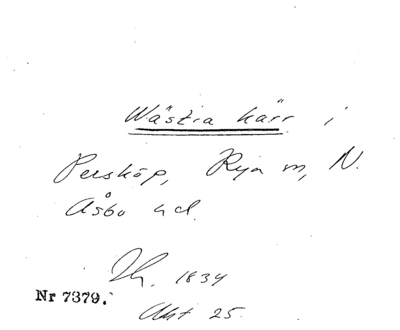 Wästra kärr i
Perskóp, Rya m, N.
Åsbo hd.
Th. 1834
Nr 7379.
Akt 25.